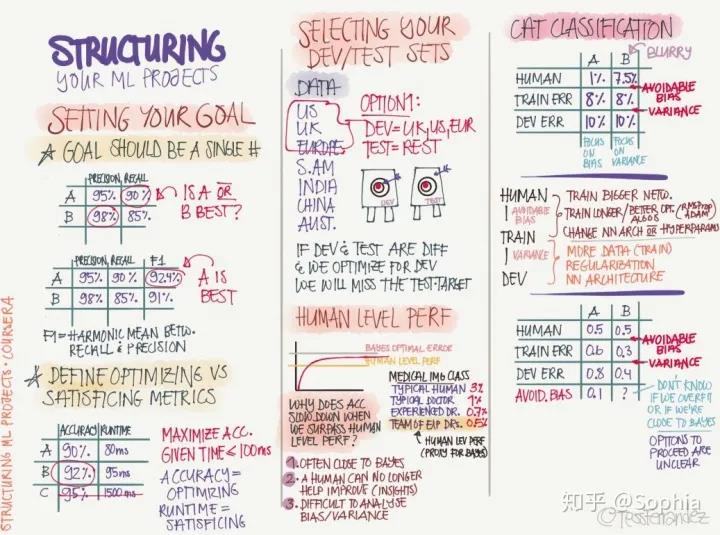 STRUCTURING
YOUR ML PROJECTS
SETTING YOUR GOAL
GOAL SHOULD BE A SINGLE #
PRECISION, RECALL
A 95% 90%
B 98% 85%
IS A OR
B BEST?
PRECISION, RECALL F1
A 95% 90% 92.4%
B 98% 85% 91%
A IS
BEST
F1 = HARMONIC MEAN BETW.
RECALL & PRECISION
DEFINE OPTIMIZING VS
SATISFICING METRICS
ACCURACY RUNTIME
A 90% 80ms
B 92% 95ms
C 95% 1500 ms
MAXIMIZE ACC.
GIVEN TIME ≤ 100ms
ACCURACY =
OPTIMIZING
RUNTIME =
SATISFICING
STRUCTURING ML PROJECTS · COURSERA
SELECTING YOUR
DEV/TEST SETS
DATA
US
UK
EUROPE
S.AM
INDIA
CHINA
AUST.
OPTION1:
DEV = UK, US, EUR
TEST = REST
DEV
TEST
IF DEV & TEST ARE DIFF
& WE OPTIMIZE FOR DEV
WE WILL MISS THE TEST TARGET
HUMAN LEVEL PERF
BAYES OPTIMAL ERROR
HUMAN LEVEL PERF
MEDICAL IMG CLASS
TYPICAL HUMAN 3%
TYPICAL DOCTOR 1%
EXPERIENCED DR. 0.7%
TEAM OF EXP DRs. 0.5%
HUMAN LEV PERF
(PROXY FOR BAYES)
WHY DOES ACC
SLOW DOWN WHEN
WE SURPASS HUMAN
LEVEL PERF?
1. OFTEN CLOSE TO BAYES
2. A HUMAN CAN NO LONGER
HELP IMPROVE (INSIGHTS)
3. DIFFICULT TO ANALYSE
BIAS/VARIANCE
CAT CLASSIFICATION
A B
BLURRY
HUMAN 1% 7.5%
TRAIN ERR 8% 8%
DEV ERR 10% 10%
AVOIDABLE
BIAS
VARIANCE
FOCUS
ON
BIAS
FOCUS
ON
VARIANCE
HUMAN
AVOIDABLE
BIAS
TRAIN
VARIANCE
DEV
TRAIN BIGGER NETW.
TRAIN LONGER/BETTER OPT. ALGOS (RMSPROP ADAM)
CHANGE NN ARCH OR HYPERPARAMS
MORE DATA (TRAIN)
REGULARIZATION
NN ARCHITECTURE
A B
HUMAN 0.5 0.5
TRAIN ERR 0.6 0.3
DEV ERR 0.8 0.4
AVOID. BIAS 0.1 ?
AVOIDABLE
BIAS
VARIANCE
DON'T KNOW
IF WE OVERFIT
OR IF WE'RE
CLOSE TO BAYES
OPTIONS TO
PROCEED ARE
UNCLEAR
知乎 @Sophia
©TessFerrandez